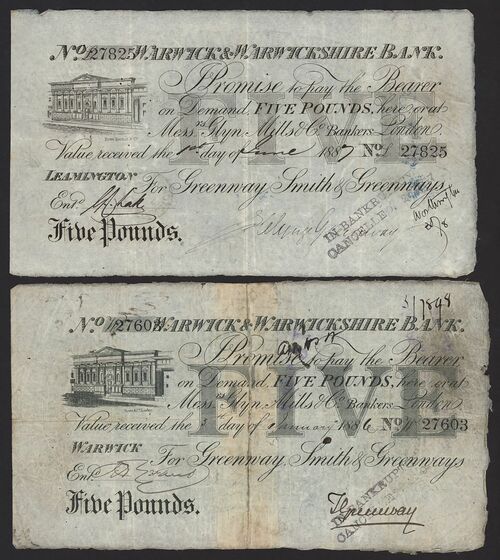 No L/27825 WARWICK & WARWICKSHIRE BANK.
I Promise to pay the Bearer
on Demand, FIVE POUNDS, here or at
Mess.rs Glyn Mills & Co. Bankers London
Value received the 1st day of June 1887 No L 27825
LEAMINGTON For Greenway, Smith & Greenways
Entd.
Five Pounds.
FIVE
IN BANKRUPTCY
CANCELLED
No 27603 WARWICK & WARWICKSHIRE BANK.
I Promise to pay the Bearer
on Demand, FIVE POUNDS, here or at
Mess.rs Glyn Mills & Co. Bankers London
Value received the 3 day of January 1886 No 27603
WARWICK For Greenway, Smith & Greenways
Entd.
Five Pounds.
FIVE
IN BANKRUPTCY